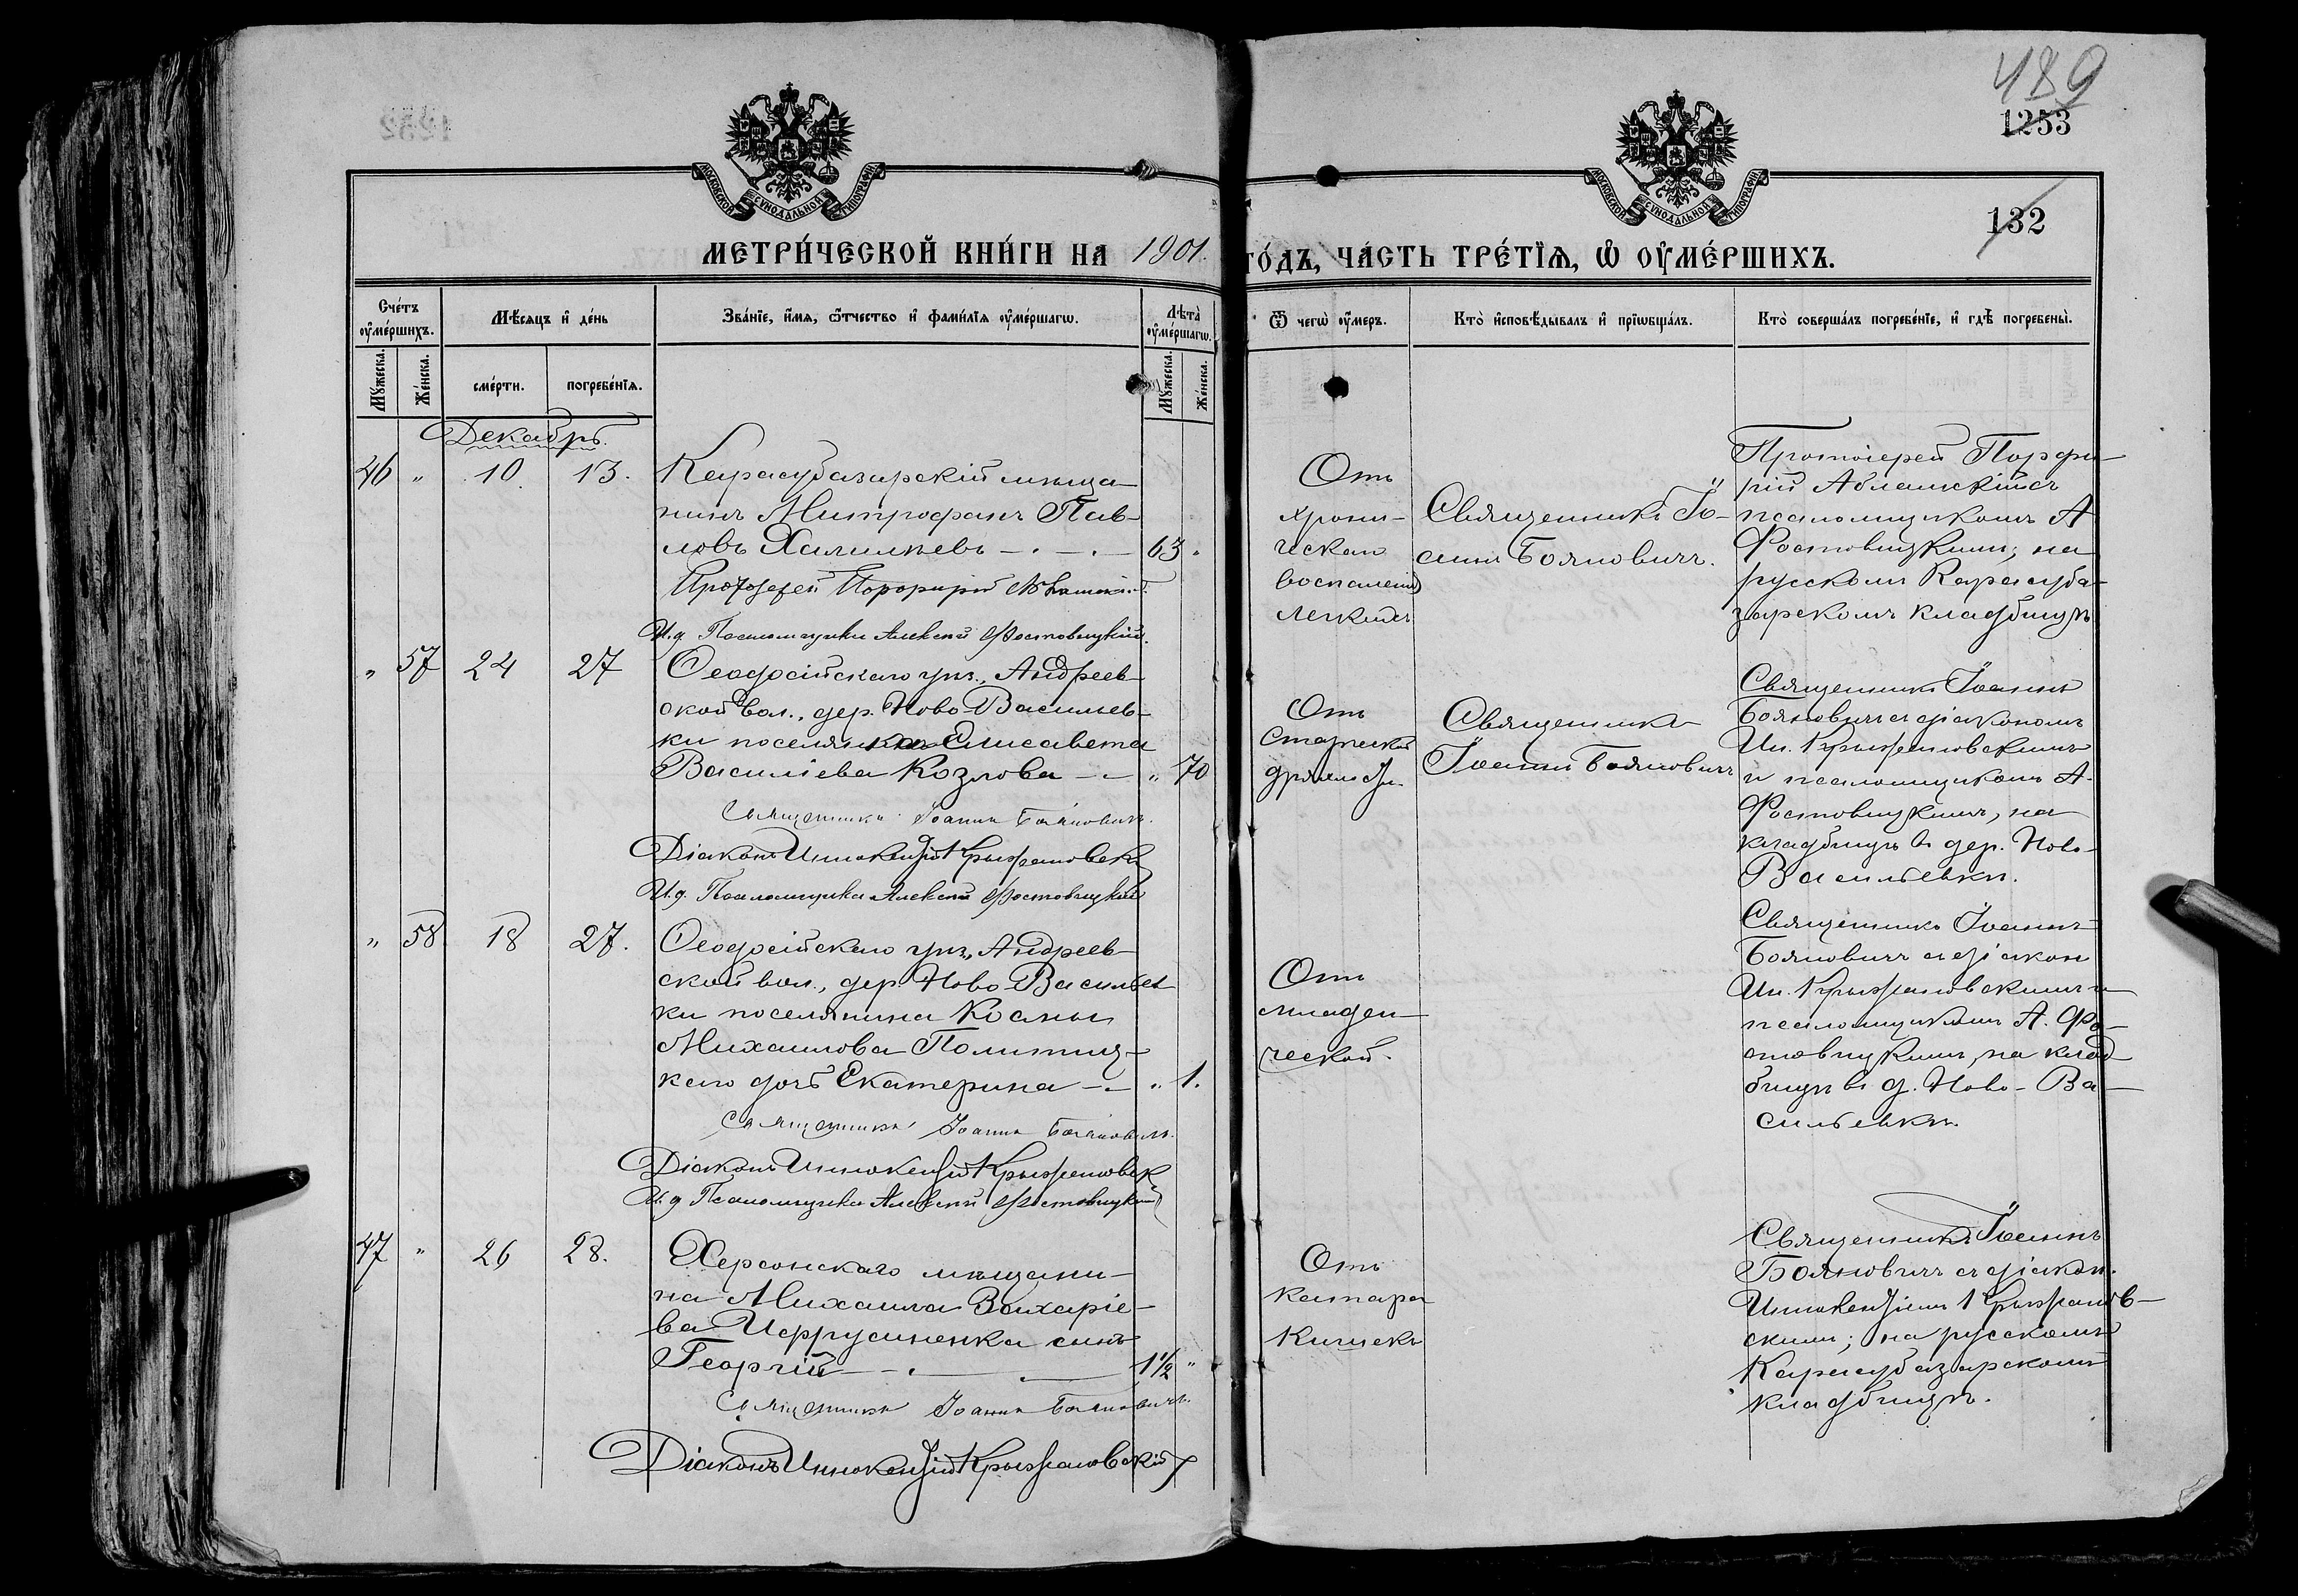 489
1253
132
МОСКОВСКОЙ СУНОДАЛЬНОЙ ТИПОГРАФІИ
МОСКОВСКОЙ СУНОДАЛЬНОЙ ТИПОГРАФІИ
МЕТРИ́ЧЕСКОЙ КНИ́ГИ НА 1901. ГО́ДЪ, ЧА́СТЬ ТРЕ́ТЇѦ, Ѡ҆ ОУ҆МЕ́РШИХЪ.
Сче́тъ оу҆ме́ршихъ.
Мѣ́сѧцъ и҆ де́нь
Зва́нїе, и҆́мѧ, ѻ҆́тчество и҆ фами́лїѧ оу҆ме́ршагѡ.
Лѣта̀ оу҆ме́ршагѡ.
Ѿ чегѡ̀ оу҆́меръ.
Кто̀ и҆сповѣ́дывалъ и҆ прїѡбща́лъ.
Кто̀ соверша́лъ погребе́нїе, и҆ гдѣ̀ погребены̀.
Мꙋ́жеска.
Же́нска.
сме́рти.
погребе́нїѧ.
Мꙋ́жеска.
Же́нска.
Декабрь.
46 " 10. 13.
Карасубазарскій мѣща-
нинъ Митрофанъ Пав-
ловъ Халилѣевъ 63 "
Протоіерей Порфирій
И.д. Псаломщика Алексѣй Фостовицкій.
Отъ
хрони-
ческаго
воспаленія
легкихъ
Священникъ Іо-
аннъ Бояновичъ.
Протоіерей Порфи-
рій съ
псаломщикомъ А.
Фостовицкимъ; на
русскомъ Карасуба-
зарскомъ кладбищѣ
" 57 24 27
Ѳеодосійскаго уѣз., Андреев-
ской вол., дер. Ново-Васильев-
ки поселянка Елисавета
Василіева Козлова " 70
Священникъ Іоаннъ Бояновичъ.
Діаконъ Иннокентій Крыжановскій
И.д. Псаломщика Алексѣй Фостовицкій
Отъ
старческой
дряхлости
Священникъ
Іоаннъ Бояновичъ
Священникъ Іоаннъ
Бояновичъ съ діакономъ
Ин. Крыжановскимъ
и псаломщикомъ А.
Фостовицкимъ, на
кладбищѣ въ дер. Ново-
Васильевкѣ.
" 58 18 27.
Ѳеодосійскаго уѣз., Андреев-
ской вол., дер. Ново-Васильев-
ки поселянина Космы
Михаилова Политиц-
каго дочь Екатерина " 1.
Священникъ Іоаннъ Бояновичъ.
Діаконъ Иннокентій Крыжановск
И.д. Псаломщика Алексѣй Фостовицкій
Отъ
младен-
ческой.
Священникъ Іоаннъ
Бояновичъ съ діакон
Ин. Крыжановскимъ и
псаломщикомъ А. Фо-
стовицкимъ, на клад-
бищѣ въ д. Ново-Ва-
сильевкѣ.
47 " 26 28.
Херсонскаго мѣщани-
на Михаила Захаріе-
ва сынъ
Георгій 1½ "
Священникъ Іоаннъ Бояновичъ.
Діаконъ Иннокентій Крыжановскій
Отъ
катара
кишекъ
Священникъ Іоаннъ
Бояновичъ съ діакон.
Иннокентіемъ Крыжанов-
скимъ; на русскомъ
Карасубазарскомъ
кладбищѣ.